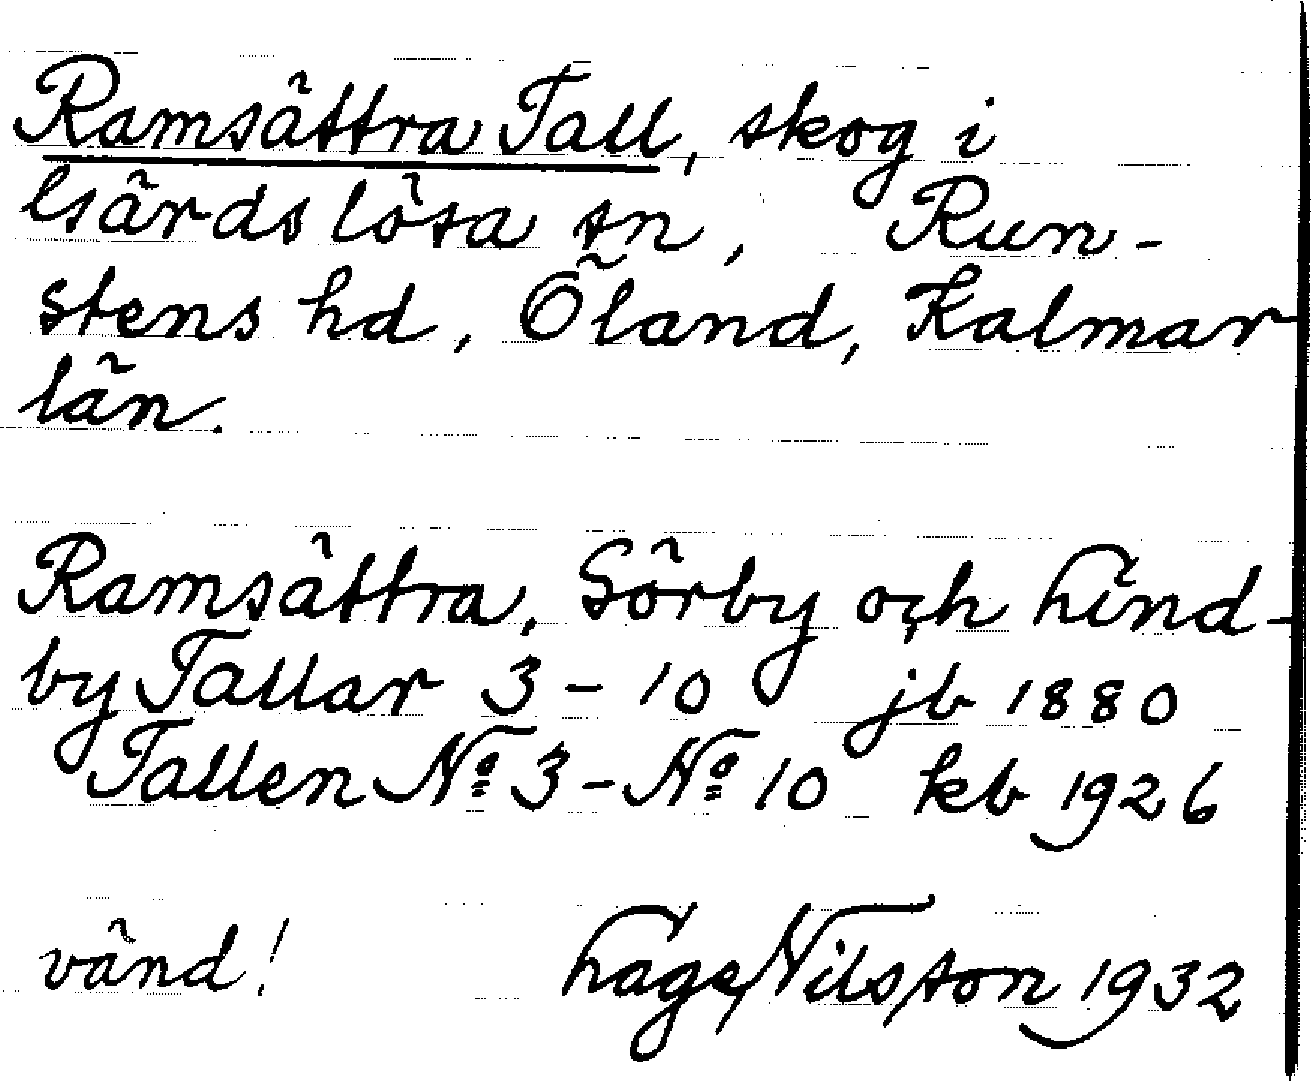 Ramsättra Tall, skog i
Gärdslösa sn, Run-
stens hd, Öland, Kalmar
län.
Ramsättra, Sörby och Hind-
by Tallar 3 - 10 jb 1880
Tallen Nº 3 - Nº 10 kb 1926
vänd! Hage Nilsson 1932